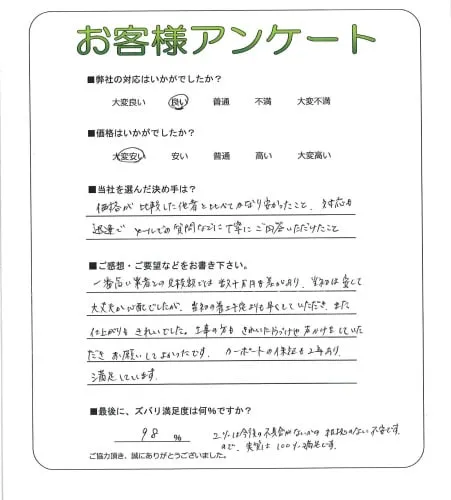 お客様アンケート
■弊社の対応はいかがでしたか？
大変良い 良い 普通 不満 大変不満
■価格はいかがでしたか？
大変安い 安い 普通 高い 大変高い
■当社を選んだ決め手は？
価格が比較した他者と比べてかなり安かったこと、対応が
迅速で メールでの質問などに丁寧にご回答いただけたこと
■ご感想・ご要望などをお書き下さい。
一番高い業者との見積額では 数十万円も差があり、当初は安くて
大丈夫か心配でしたが、当初の着工予定よりも早くしていただき、また
仕上がりも きれいでした。工事の方も きれいに片づけや声かけをしていた
だき お願いしてよかったです。 カーポートの保証も 2年あり、
満足しています。
■最後に、ズバリ満足度は何％ですか？
98 ％ 2%は今後の不具合がないかの 不安です
ので、実質は 100%満足です。
ご協力頂き、誠にありがとうございました。